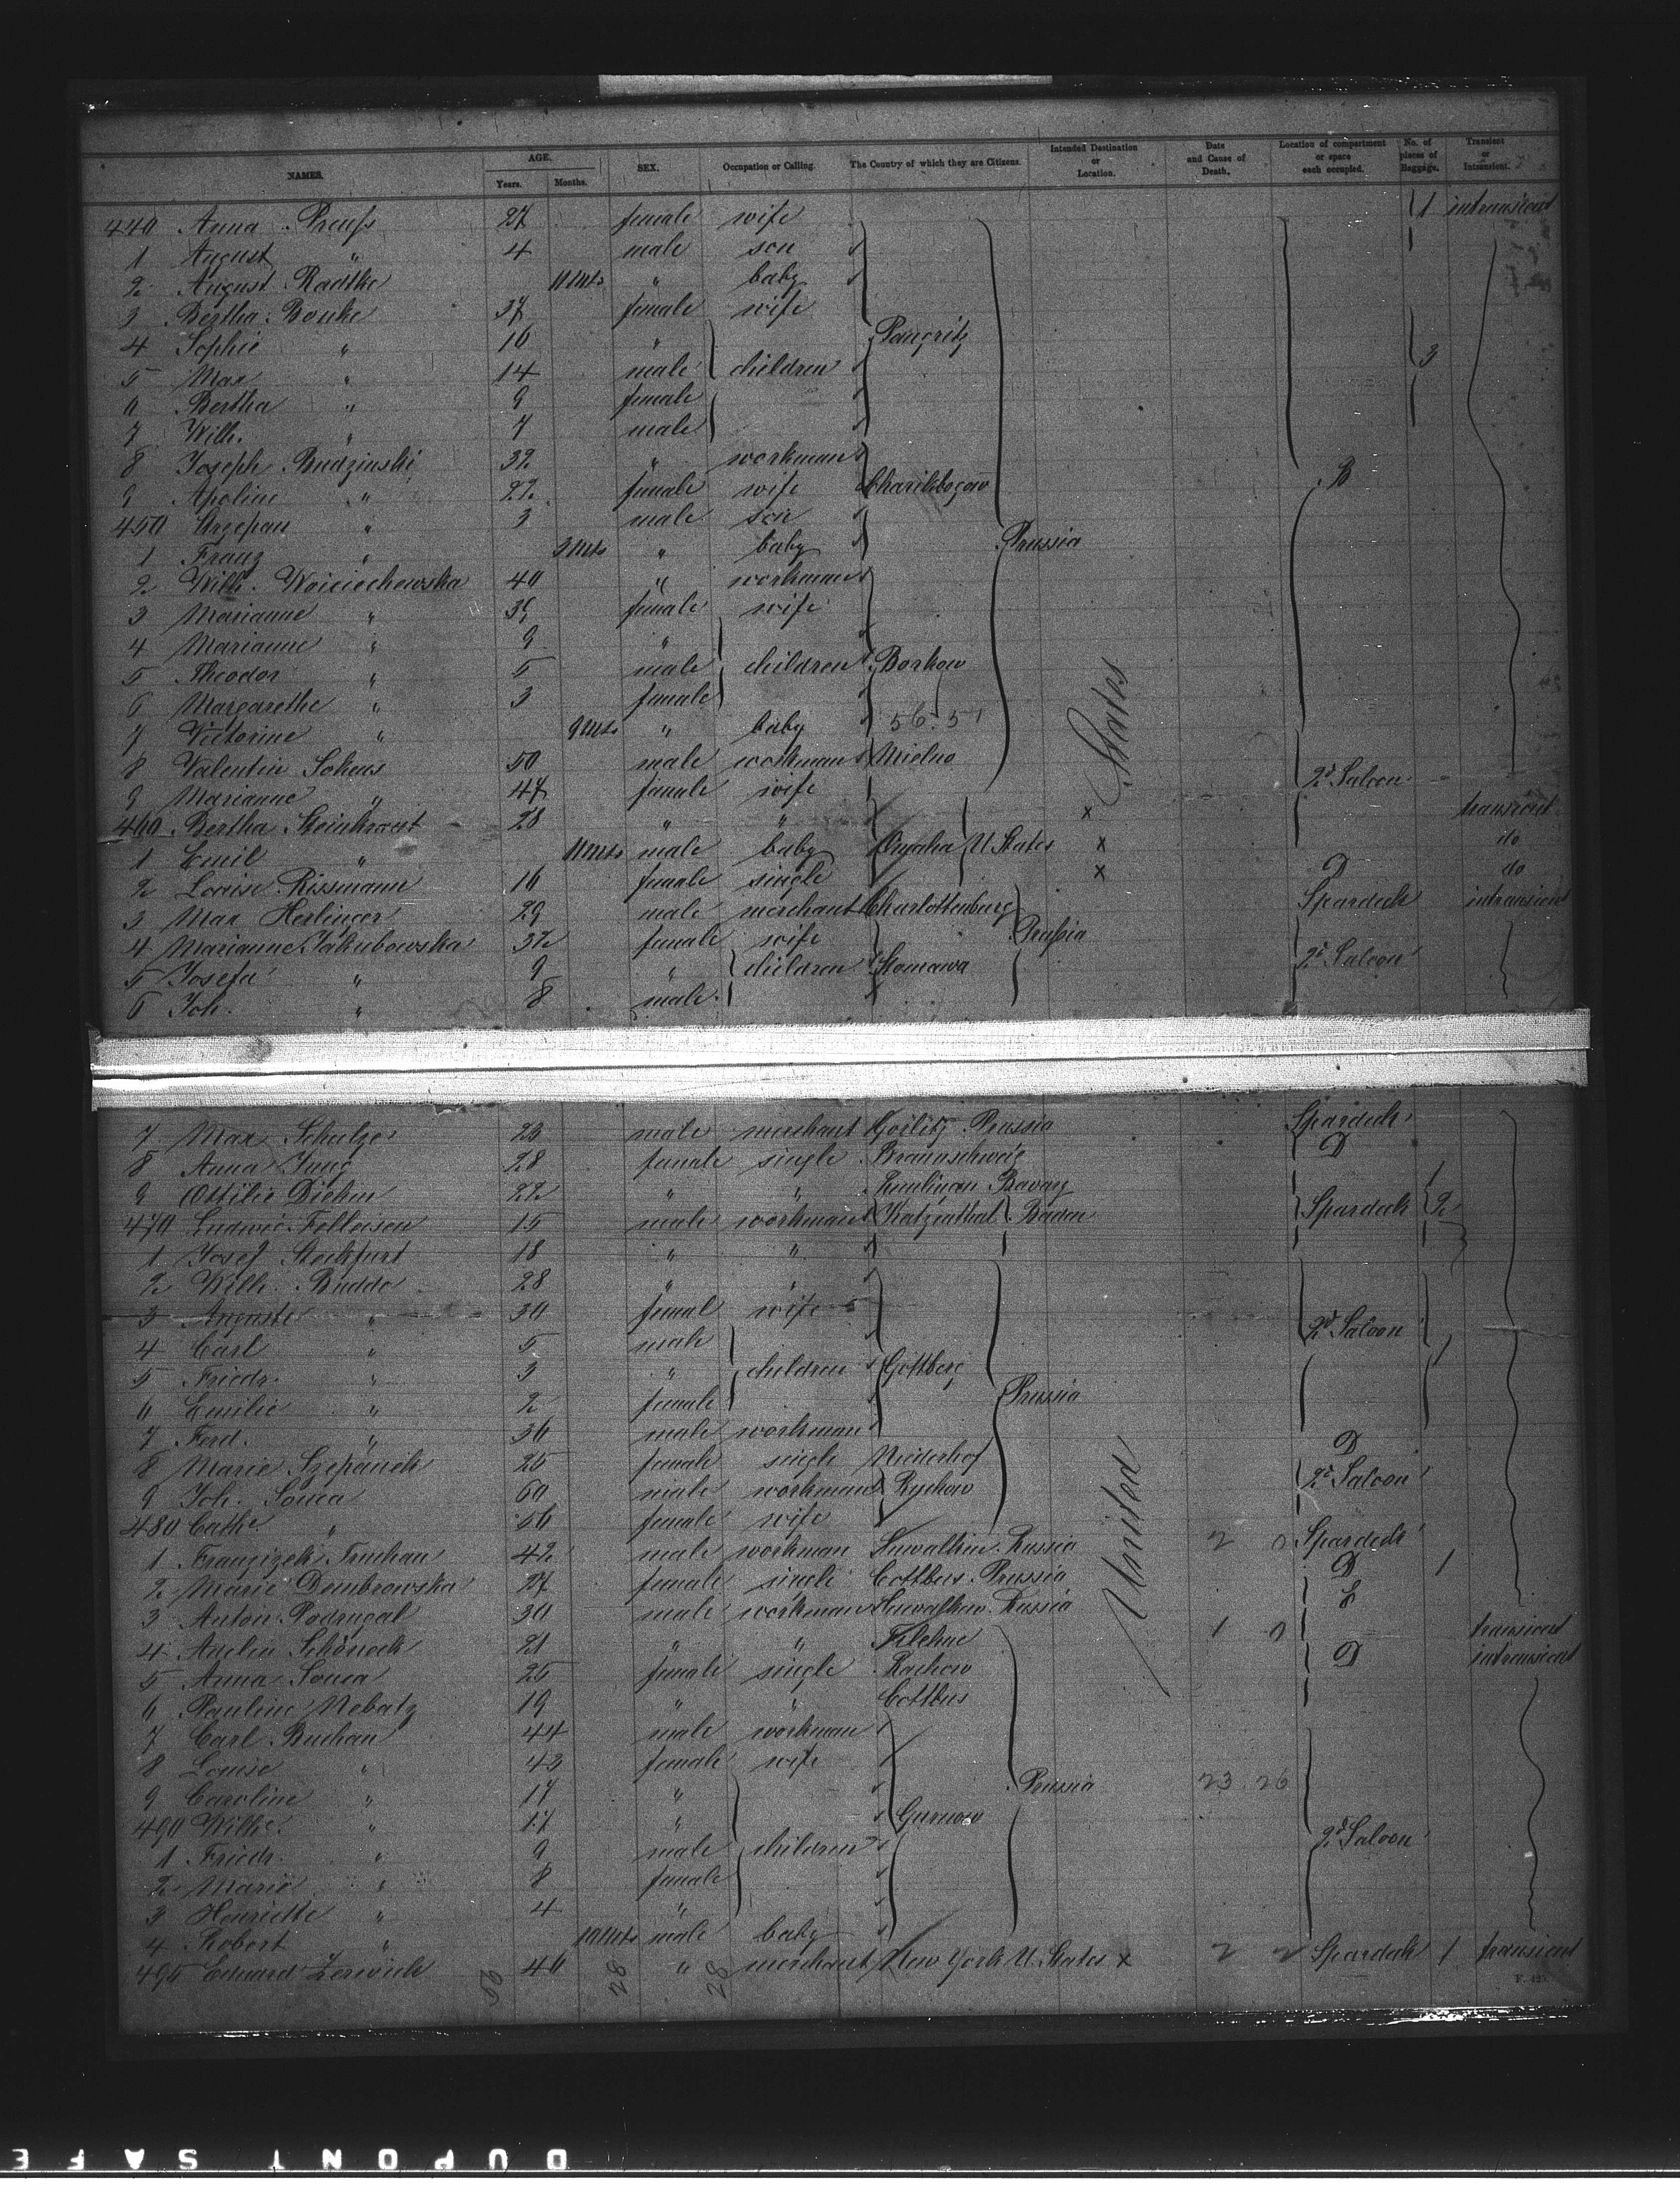 NAMES. AGE. Years. Months. SEX. Occupation or Calling. The Country of which they are Citizens. Intended Destination or Location. Date and Cause of Death. Location of compartment or space each occupied. No. of pieces of Baggage. Transient or Intransient.
440 Anna Preuß 27 female wife 1 intransient
1 August " 4 male son
2 August Radtke 11 Mts " baby
3 Bertha Bonke 37 female wife
4 Sophie " 16 " Pangritz
5 Max " 14 male children 3
6 Bertha " 9 female
7 Wilh. " 7 male
8 Joseph Budzinski 32 " workman
9 Apoline " 22 female wife B
450 " 3 male son
1 Franz " 3 Mts " baby Prussia
2 Wilh. Woiciechowska 40 " workman
3 Marianne " 39 female wife
4 Marianne " 9 "
5 Theodor " 5 male children Borkow
6 Margarethe " 3 female
7 Victorine " 9 Mts " baby 56.51
8 Valentin 50 male workman Mielno States
9 Marianne " 47 female wife 2d Saloon
460 Bertha Steinkraut 28 " " x transient
1 Emil " 11 Mts male baby Omaha U States x do
2 Louise Rissmann 16 female single x D do
3 Max Herlinger 29 male merchant Charlottenburg Spardeck intransient
4 Marianne Jakubowska 32 female wife Prußia
5 Josefa " 9 " children 2d Saloon
6 Joh. " 8 male
7 Max Schulze 23 male merchant Görlitz Prussia Spardeck
8 Anna Jung 28 female single Braunschweig D
9 Ottilie Diehm 22 " " Bavary
470 Ludwig Felleisen 15 male workman Katzenthal Baden Spardeck 2
1 Josef Steckfurt 18 " "
2 Wilh. Budde 28 " "
3 Auguste " 30 female wife
4 Carl " 5 male 2d Saloon
5 Friedr. " 3 " children Gottberg 1
6 Emilie " 2 female Prussia
7 Ferd. " 36 male workman
8 Marie Szepanick 25 female single Niederhof D
9 Joh. Sonca 60 male workman Rychow 2d Saloon
480 Cathe " 56 female wife
1 Franzizek Truchan 42 male workman Suwalkin Russia 2 0 Spardeck
2 Marie Dombrowska 27 female single Cottbus Prussia D 1
3 Anton Podrugal 30 male workman Suwalkow Russia United E
4 Schöneck 21 " " Filehne 1 0 transient
5 Anna Sonca 25 female single Rachow D intransient
6 Pauline Nebatz 19 " " Cottbus
7 Carl Buchan 44 male workman
8 Louise " 43 female wife
9 Caroline " 17 " Prussia 23 26
490 Wilhe. " 11 " Gurnow
1 Friedr. " 9 male children 2d Saloon
2 Marie " 8 female
3 Henriette " 4 "
4 Robert " 10 Mts male baby
495 Eduard Zerwick 46 " merchant New York U. States x 2 2 Spardeck 1 transient
50 28 28
DUPONT SAFE